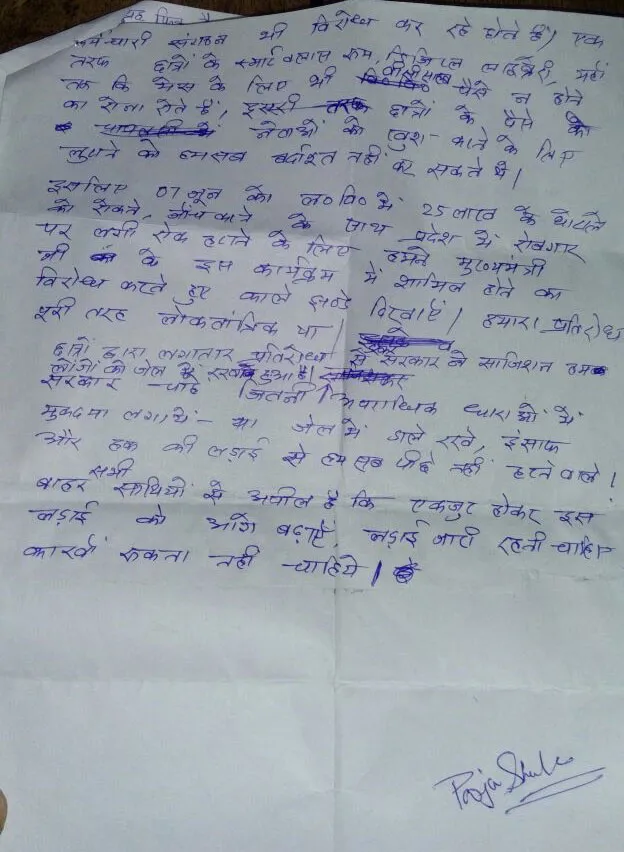 कर्मचारी संगठन भी विरोध कर रहे होते हैं। एक
तरफ छात्रों के स्मार्ट क्लास रूम, डिजिटल लाइब्रेरी, यहाँ
तक कि मेस के लिए भी वी सी साहब पैसे न होने
का रोना रोते हैं, दूसरी तरफ छात्रों के पैसे को
नेताओं को खुश करने के लिए
लुटाने को हम सब बर्दाश्त नहीं कर सकते थे।
इसलिए 07 जून को ल० वि० में 25 लाख के घोटाले
को रोकने, जाँच कराने के साथ प्रदेश में रोजगार
पर लगी रोक हटाने के लिए हमने मुख्यमंत्री
जी के इस कार्यक्रम में शामिल होने का
विरोध करते हुए काले झण्डे दिखाएं। हमारा प्रतिरोध
पूरी तरह लोकतांत्रिक था।
छात्रों द्वारा लगातार प्रतिरोध से सरकार ने साजिशन हम
लोगों को जेल में रखा हुआ है।
सरकार चाहे जितनी अपराधिक धाराओं में
मुकदमा लगाये या जेल में डाले रखे, इंसाफ
और हक की लड़ाई से हम सब पीछे नहीं हटने वाले।
बाहर सभी साथियों से अपील है कि एकजुट होकर इस
लड़ाई को आगे बढ़ाएँ, लड़ाई जारी रहनी चाहिए
कारवाँ रुकना नहीं चाहिये।
Pooja Shukla